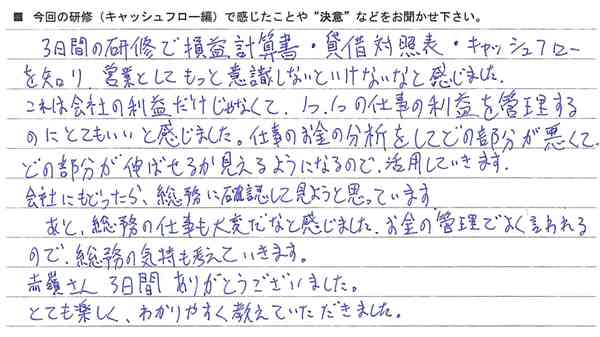 ■ 今回の研修（キャッシュフロー編）で感じたことや“決意”などをお聞かせ下さい。
3日間の研修で損益計算書・貸借対照表・キャッシュフロー
を知り、営業としてもっと意識しないといけないなと感じました。
これは会社の利益だけじゃなくて、1つ、1つの仕事の利益を管理する
のにとてもいいと感じました。仕事のお金の分析をしてどの部分が悪くて、
どの部分が伸ばせるか見えるようになるので、活用していきます。
会社にもどったら、総務に確認して見ようと思っています
あと、総務の仕事も大変だなと感じました。お金の管理でよく言われる
ので、総務の気持も考えていきます。
赤嶺さん 3日間 ありがとうございました。
とても楽しく、わかりやすく教えていただきました。